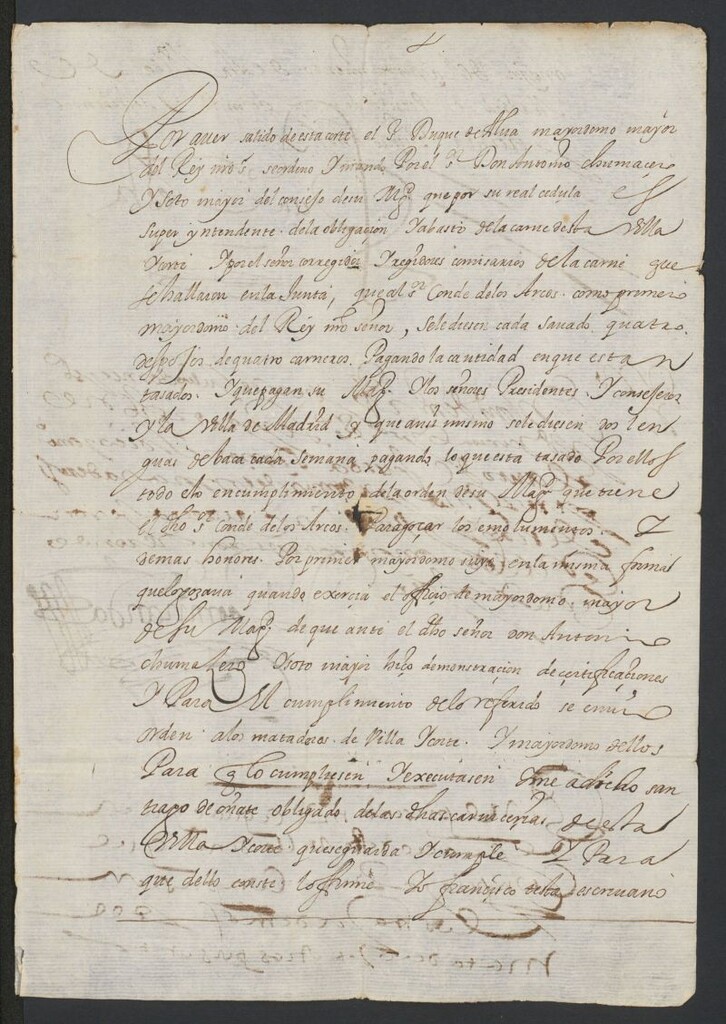 Por auer salido de esta corte el Sr Duque de Alua mayordomo mayor
del Rey nro sr se ordeno Y mando Por el sr Don Antonio chumacero
Y soto mayor del consejo de su Magd que por su real cedula es
super yntendente de la obligacion Y abasto de la carne desta Villa
Y corte Y por el señor corregidor Y regidores comisarios de la carne que
se hallaron en la Junta, que al sr Conde de los Arcos como primero
mayordomo del Rey nro señor, se le diesen cada sauado quatro
despojos de quatro carneros Pagando la cantidad en que estan
tasados Y que pagan su Magd Y los señores Presidentes Y consejeros
Y la Villa de Madrid Y que ansi mismo se le diesen dos len
guas de baca cada semana pagando lo que esta tasado Por ellos
todo ello en cumplimiento de la orden de su Magd que tiene
el dho sr Conde de los Arcos Para goçar los emolumentos Y
demas honores Por primer mayordomo suyo en la misma forma
que lo gozaua quando exercia el officio de mayordomo mayor
de su Magd de que ante el dho señor don Antonio
chumacero Y soto mayor hiço demonstracion de certificaciones
Y Para el cumplimiento de lo referido se
orden a los matadores de Villa Y corte Y mayordomo dellos
Para q lo cumpliesen Y executasen Y me a dicho san
tiago de oñate obligado de las dhas carnicerias de esta
Villa Y corte que se guarda Y cumple Y Para
que dello conste lo firme Yo francisco testa escriuano